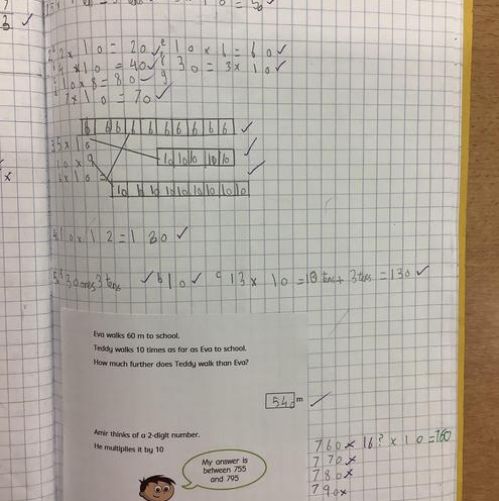 2 x 10 = 20 ✓ e 10 x 6 = 60 ✓
4 x 10 = 40 ✓ f 30 = 3 x 10 ✓
10 x 8 = 80
7 x 10 = 70 ✓
6 6 6 6 6 6 6 6 6 6 ✓
35 x 10
10 10 10 10 10 ✓
10 x 9
6 x 10 = ✓
10 10 10 10 10 10 10 10 10
10 x 12 = 1 30 ✓
5 a 3 0 ones 3 tens ✓ b 10 ✓ c 13 x 10 = 10 tens + 3 tens = 130 ✓
Eva walks 60 m to school.
Teddy walks 10 times as far as Eva to school.
How much further does Teddy walk than Eva?
540 m ✓
Amir thinks of a 2-digit number.
He multiplies it by 10
My answer is
between 755
and 795
760 x 16? x 10 = 160
770 x
780 x
790 x